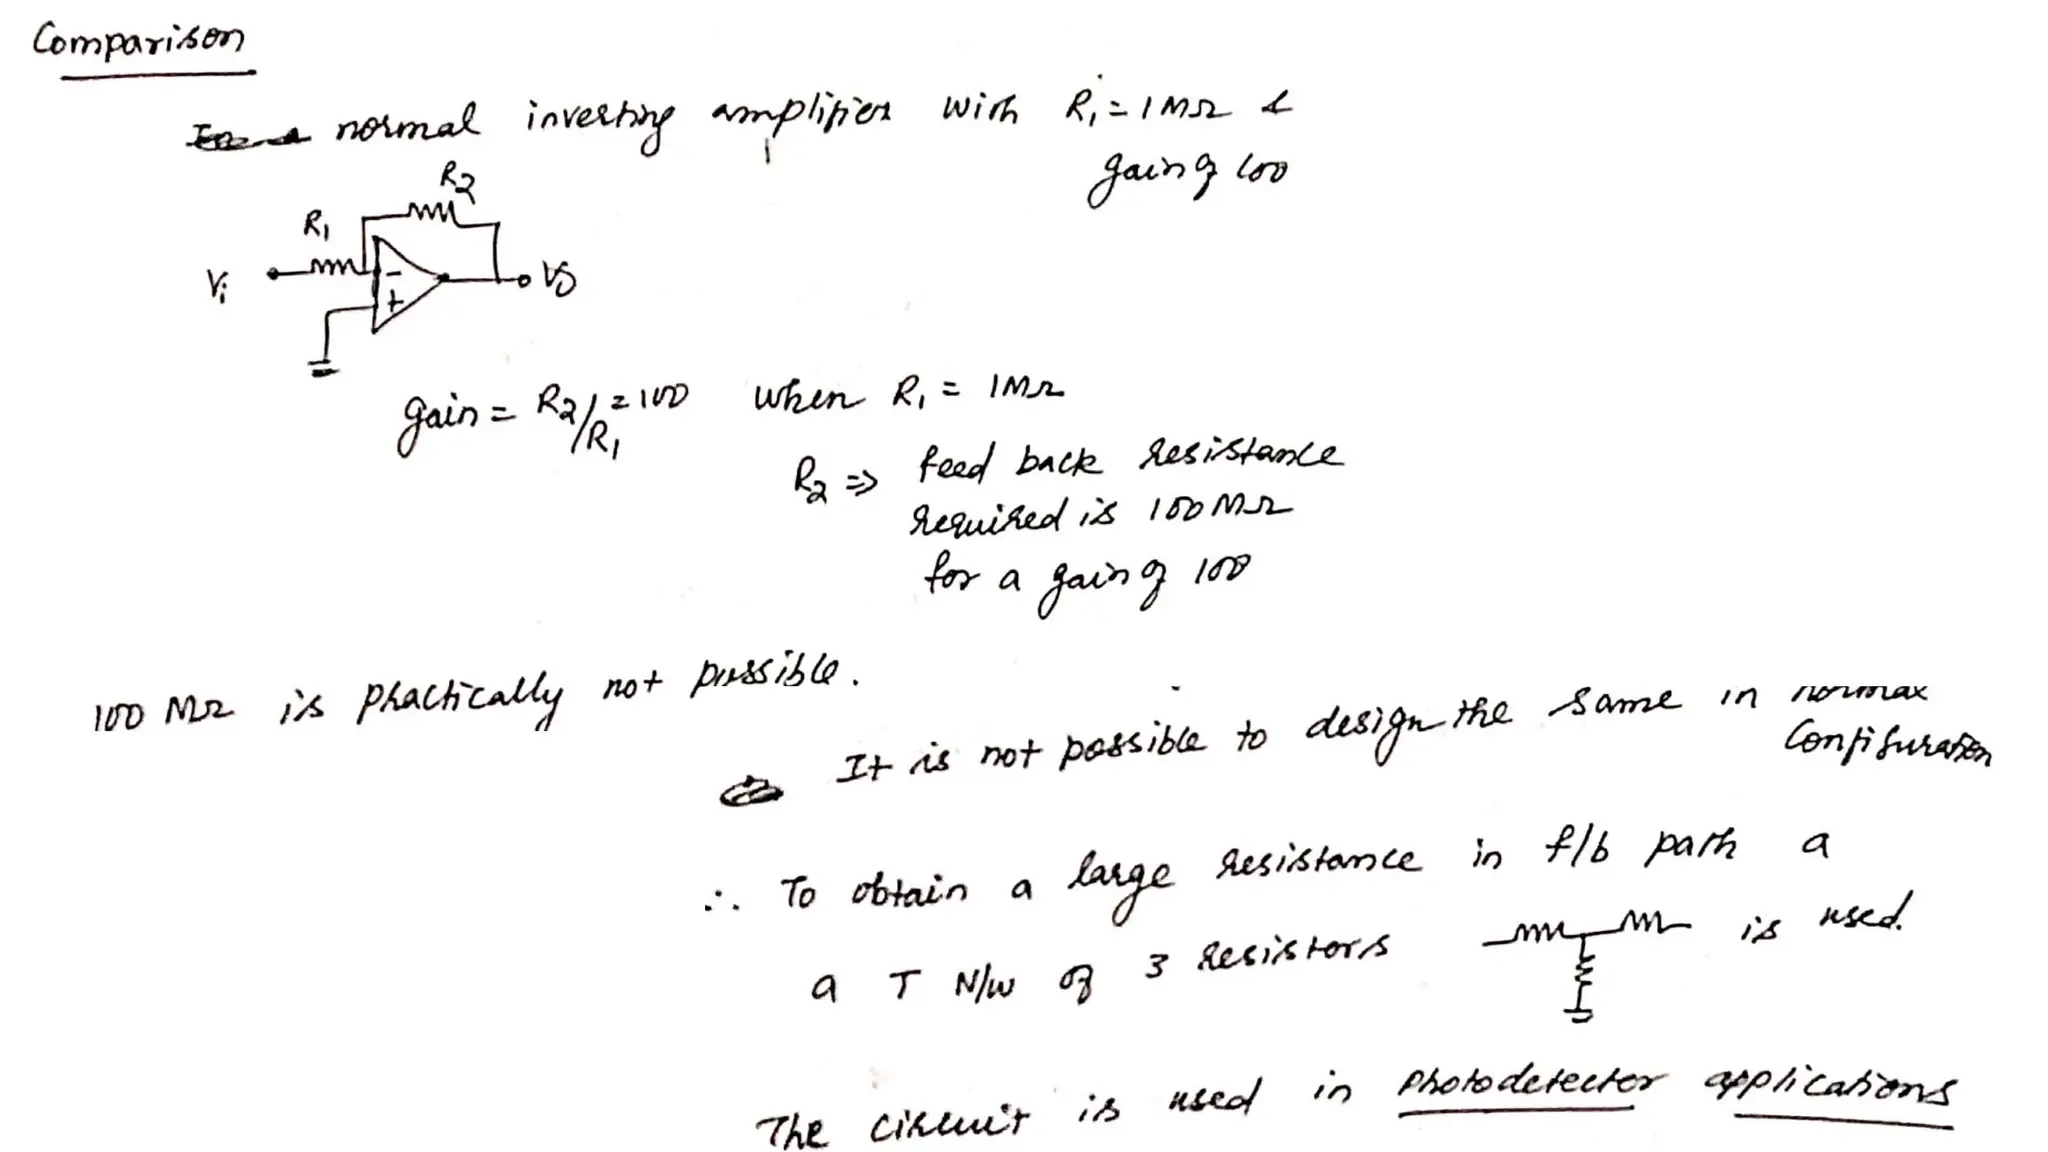 Comparison
normal inverting amplifier with R₁ = 1MΩ &
gain of 100
R2
R1
Vi
-
+
Vo
gain = R2/R1 = 100 when R1 = 1MΩ
R2 ⇒ feed back resistance
required is 100 MΩ
for a gain of 100
100 MΩ is practically not possible.
It is not possible to design the same in normal
Configuration
∴ To obtain a large resistance in f/b path a
a T N/w of 3 resistors is used.
The circuit is used in photodetector applications